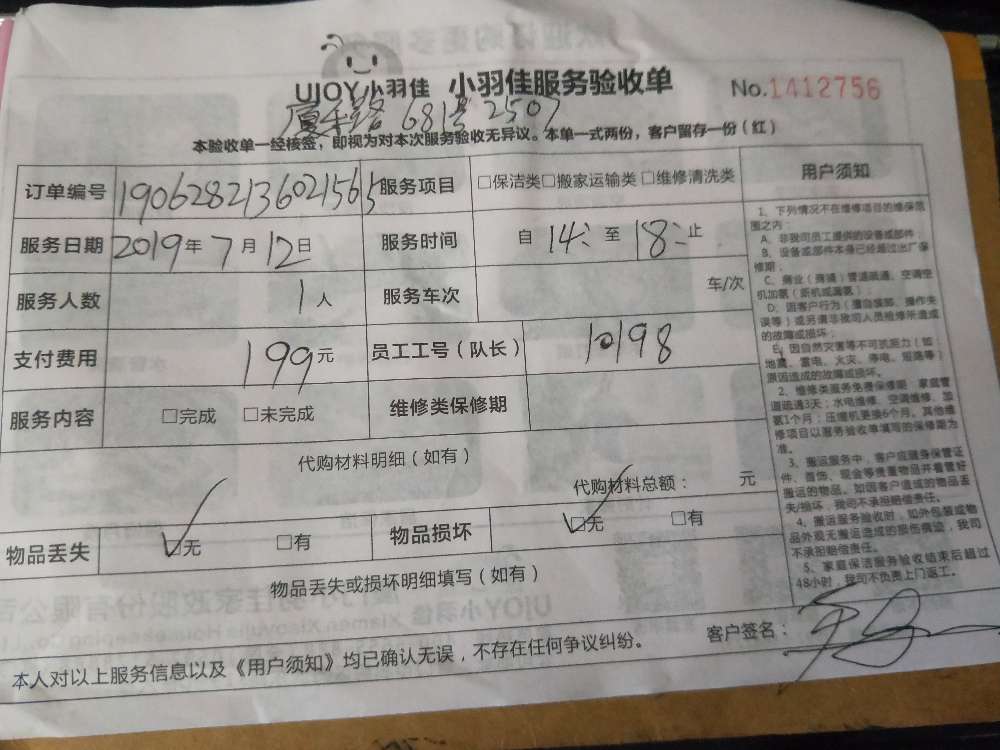 UJOY小羽佳 小羽佳服务验收单 No.1412756
681号2507
本验收单一经核签，即视为对本次服务验收无异议。本单一式两份，客户留存一份（红）
订单编号 1906282136021565 服务项目 □保洁类□搬家运输类□维修清洗类
服务日期 2019年7月12日 服务时间 自 14: 至 18: 止
服务人数 1人 服务车次 车/次
支付费用 199元 员工工号（队长） 10198
服务内容 □完成 □未完成 维修类保修期
代购材料明细（如有）
代购材料总额： 元
物品丢失 ☑无 □有 物品损坏 ☑无 □有
物品丢失或损坏明细填写（如有）
本人对以上服务信息以及《用户须知》均已确认无误，不存在任何争议纠纷。 客户签名：
用户须知
1、下列情况不在维修项目的维保范
围之内：
A、非我司员工提供的设备或部件；
B、设备或部件本身已经超过出厂保
修期；
C、商业（商铺）管道疏通、空调空
机加氨（新机或漏氨）；
D、因客户行为（擅自拆卸、操作失
误等）或另请非我司人员检修所造成
的故障或损坏；
E、因自然灾害等不可抗拒力（如：
地震、雷电、火灾、停电、短路等）
原因造成的故障或损坏。
2、维修类服务免费保修期：家庭管
道疏通3天；水电维修、空调维修、加
氨1个月；压缩机更换6个月。其他维
修项目以服务验收单填写的保修期为
准。
3、搬运服务中，客户应随身保管证
件、首饰、现金等贵重物品并看管好
搬运的物品。如因客户造成的物品丢
失/损坏，我司不承担赔偿责任。
4、搬运服务验收时，如外包装或物
品外观无搬运造成的损伤痕迹，我司
不承担赔偿责任。
5、家庭保洁服务验收结束后超过
48小时，我司不负责上门返工。